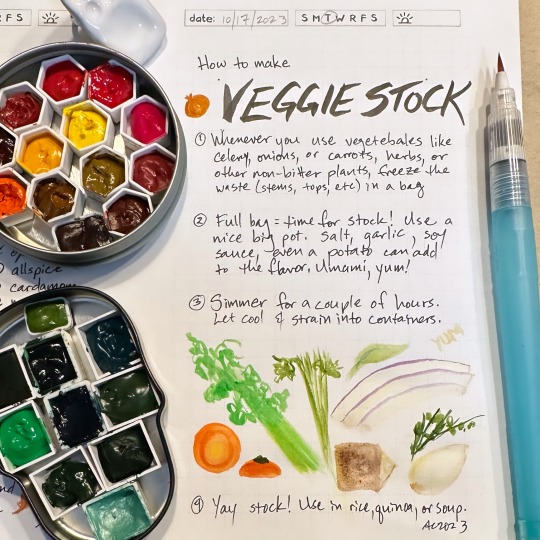 R F S
date: 10/17/2023 S M T W R F S
How to make
VEGGIE STOCK
① Whenever you use vegetebales like
celery, onions, or carrots, herbs, or
other non-bitter plants, freeze the
waste (stems, tops, etc) in a bag
② Full bag = time for stock! Use a
nice big pot. Salt, garlic, soy
sauce, even a potato can add
to the flavor, Umami, yum!
③ Simmer for a couple of hours.
Let cool & strain into containers.
YUM
④ Yay stock! Use in rice, quinoa, or soup.
allspice
cardamom